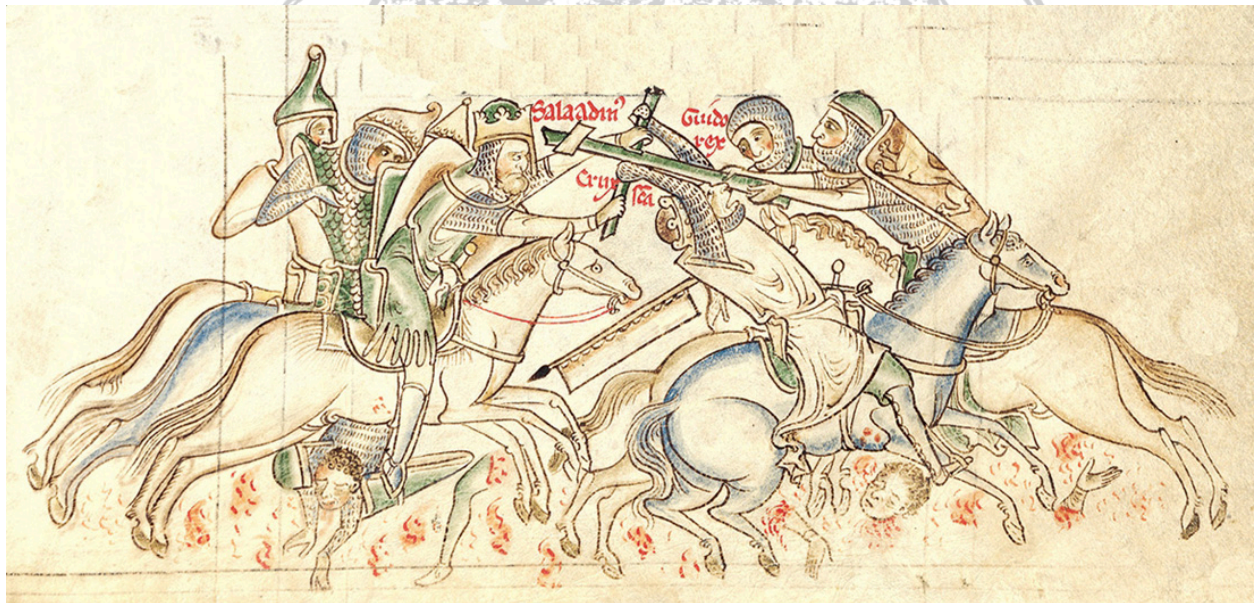 Salaadinꝰ
Guido
rex
Crux sc̄a